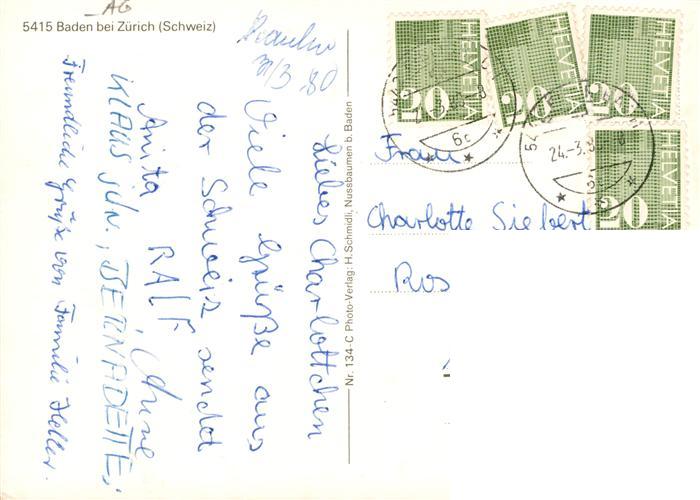 AG
5415 Baden bei Zürich (Schweiz)
Liebes Charlottchen
Viele Grüße aus
der Schweiz sendet
Anita RALF,
KLAUS jun., BERNADETTE,
Freundliche Grüße von Familie Heller.
Nr. 134-C Photo-Verlag: H. Schmidli, Nussbaumen b. Baden
HELVETIA 20
HELVETIA 20
HELVETIA 20
HELVETIA 20
6c
24.-3.8
Frau
Charlotte Siebert
Ros